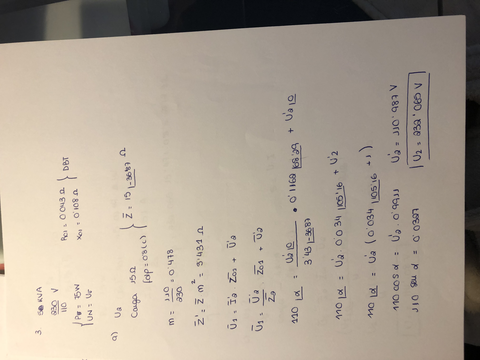 3. kVA
230 V
110
P₀ = 75W
UN = U₁
Rcc1 = 0'043 Ω
Xcc1 = 0'108 Ω } DBT
a) U₂
Carga 15Ω
fdp = 0'8 (c) } Z̄ = 15 |-36'87 Ω
m = 110/230 = 0'478
Z̄' = Z̄ m² = 3'431 Ω
Ū₁ = Ī₂' Z̄cc1 + Ū₂'
Ū₁ = Ū₂'/Z̄₂' Z̄cc1 + Ū₂'
110 |α = U₂'|0 / 3'43 |-36'87 • 0'1162 |68'29 + U₂'|0
110 |α = U₂' 0'034 |105'16 + U₂'
110 |α = U₂' (0'034 |105'16 + 1)
110 cos α = U₂' 0'9911
110 sin α = 0'0327
U₂' = 110'987 V
U₂ = 232'065 V